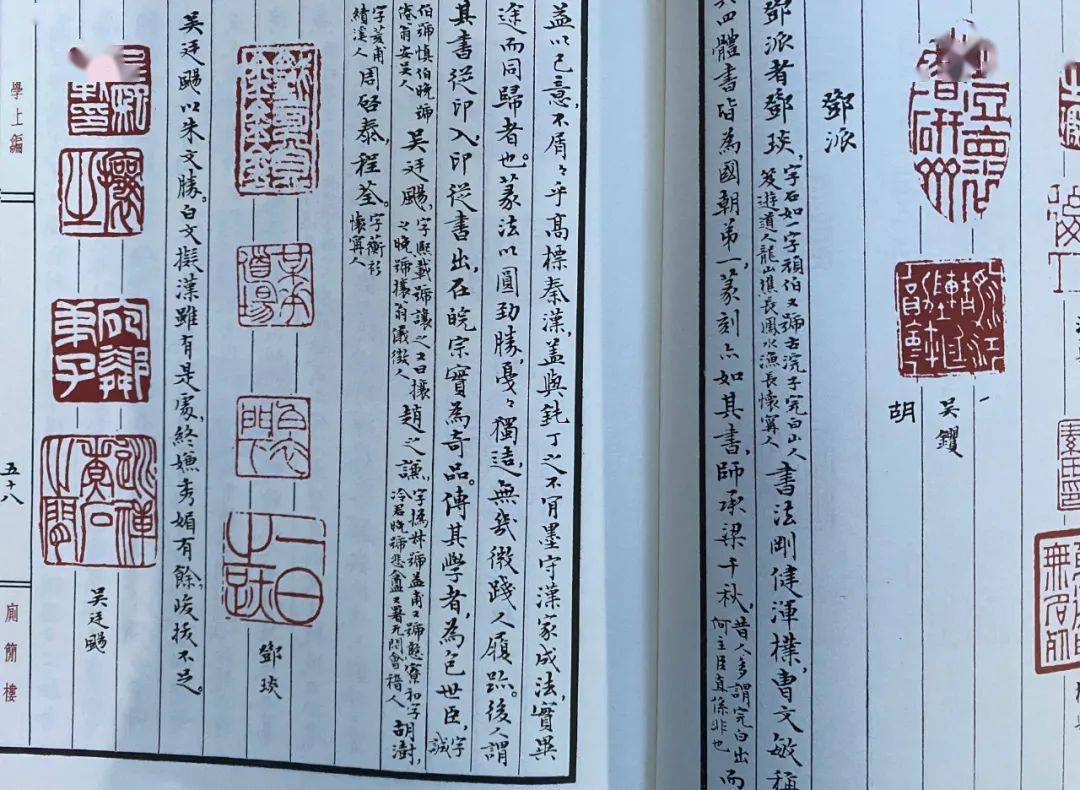 吳钁
胡
鄧派
鄧派者鄧琰,字石如一字頑伯又號古浣子完白山人
笈遊道人龍山樵長鳳水漁長懷寧人
書法剛健渾樸,曹文敏稱
其四體書皆為國朝第一,篆刻亦如其書,師承梁千秋,昔人多謂完白出
何主臣直係非也
而
益以己意,不屑々乎高標秦漢,蓋與鈍丁之不肯墨守漢家成法,實異
途而同歸者也。篆法以圓勁勝,戛々獨造,無幾微踐人履跡。後人謂
其書從印入,印從書出,在皖宗實為奇品。傳其學者,為包世臣,字誠
伯號慎伯晚號
倦翁安吳人
吳廷颺,字熙載號讓之又曰攘
之晚號攘翁儀徵人
趙之謙,字撝叔號益甫又號憨寮和字
冷君晚號悲盦又署无悶會稽人
胡澍,
字荄甫
績溪人
周啓泰,程荃。字蘅衫
懷寧人
一日之迹
鄧琰
吳廷颺以朱文勝。白文擬漢雖有是處,終嫌秀媚有餘,峻拔不足。
攘之
逃禪煮石之間
吳廷颺
學上編
五十八
廁簡樓